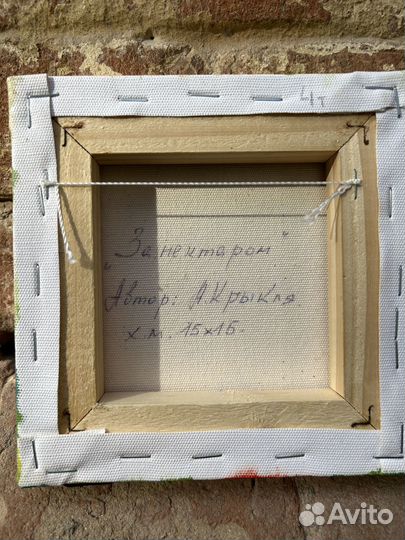 4т
"За нектаром"
Автор: А. Крыкля
х.м. 15х15.
Avito